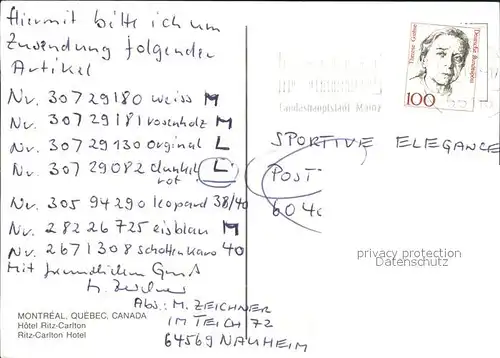 Hiermit bitte ich um
Zusendung folgender
Artikel
Nr. 30729180 weiss M
Nr. 30729181 rosenholz M
Nr. 30729130 Orginal L
Nr. 30729082 dunkel L
rot
Nr. 305 94290 leopard 38/40
Nr. 28226725 eisblau M
Nr. 2671308 schottenkaro 40
Mit freundlichem Gruß
M. Zeichner
Abs.: M. ZEICHNER
IM TEICH 72
64569 NAUHEIM
MONTRÉAL, QUÉBEC, CANADA
Hôtel Ritz-Carlton
Ritz-Carlton Hotel
Landeshauptstadt Mainz
Therese Giehse
Deutsche Bundespost
100
SPORTIVE ELEGANCE
POST
6040
privacy protection
Datenschutz